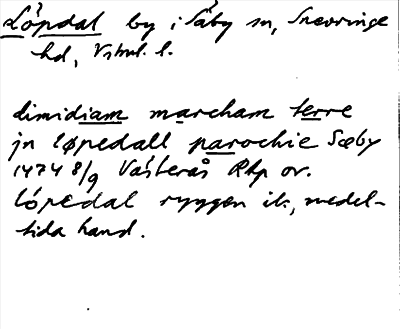 Löpdal by i Säby sn, Snevringe
hd, Vstml. l.
dimidiam marcham terre
jn løpedall parochie Sæby
1474 8/9 Västerås Rkp or.
löpedal ryggen ik, medel-
tida hand.